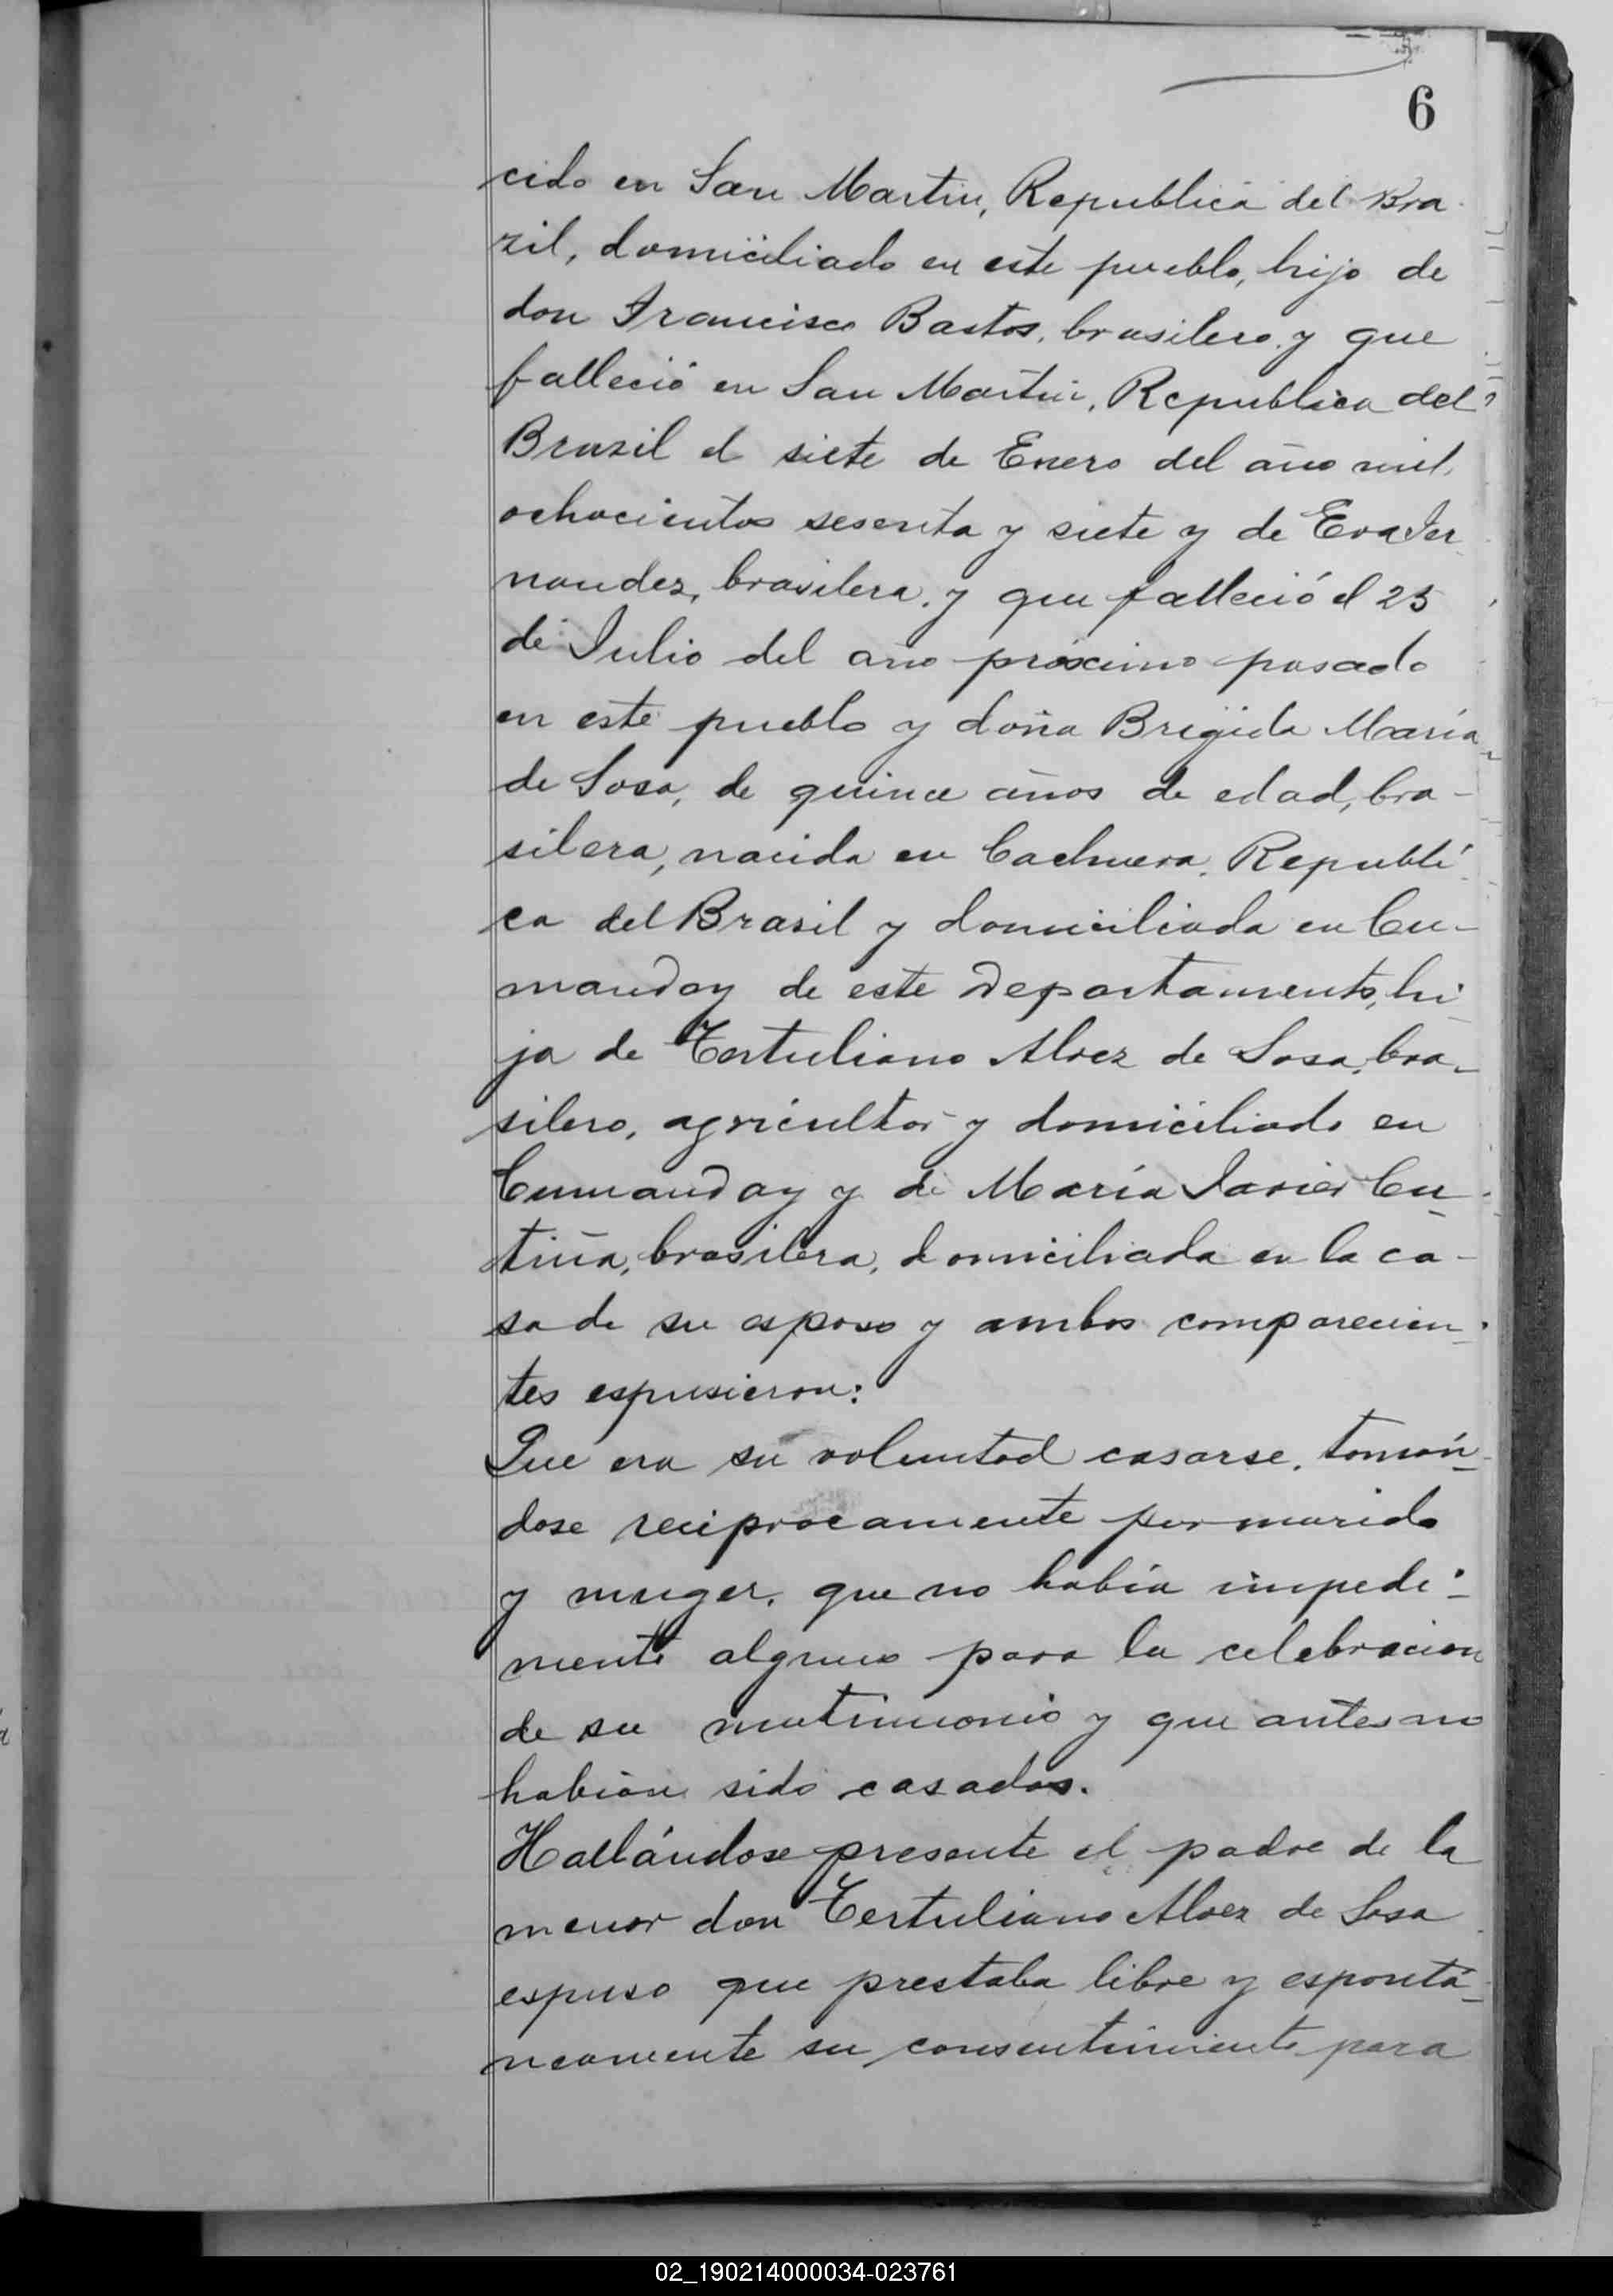 6
cido en San Martin, Republica del Bra
zil, domiciliado en este pueblo, hijo de
don Francisco Bastos, brasilero y que
falleció en San Martin, Republica del
Brasil el siete de Enero del año mil
ochocientos sesenta y siete y de Eva Fer
nandez, brasilera, y que falleció el 25
de Julio del año próximo pasado
en este pueblo y doña Brigida María
de Sosa, de quince años de edad, bra-
silera, nacida en Cachuera, Republi
ca del Brasil y domiciliada en Cu-
manday de este Departamento, hi
ja de Tertuliano Alvez de Sosa, bra-
silero, agricultor y domiciliado en
Cumanday y de María Javier Cu
tiña, brasilera, domiciliada en la ca-
sa de su esposo y ambos comparecien
tes espusieron:
Que era su voluntad casarse, tomán-
dose reciprocamente por marido
y muger, que no había impedi-
mento alguno para la celebracion
de su matrimonio y que antes no
habian sido casados.
Hallándose presente el padre de la
menor don Tertuliano Alvez de Sosa
espuso que prestaba libre y espontá-
neamente su consentimiento para
02_190214000034-023761